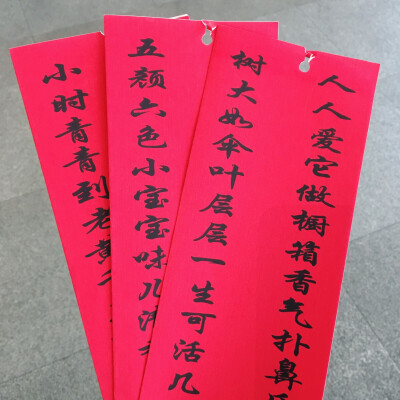 小时青青到老黄
五颜六色小宝宝味儿
树大如伞叶层层一生可活几
人人爱它做橱箱香气扑鼻